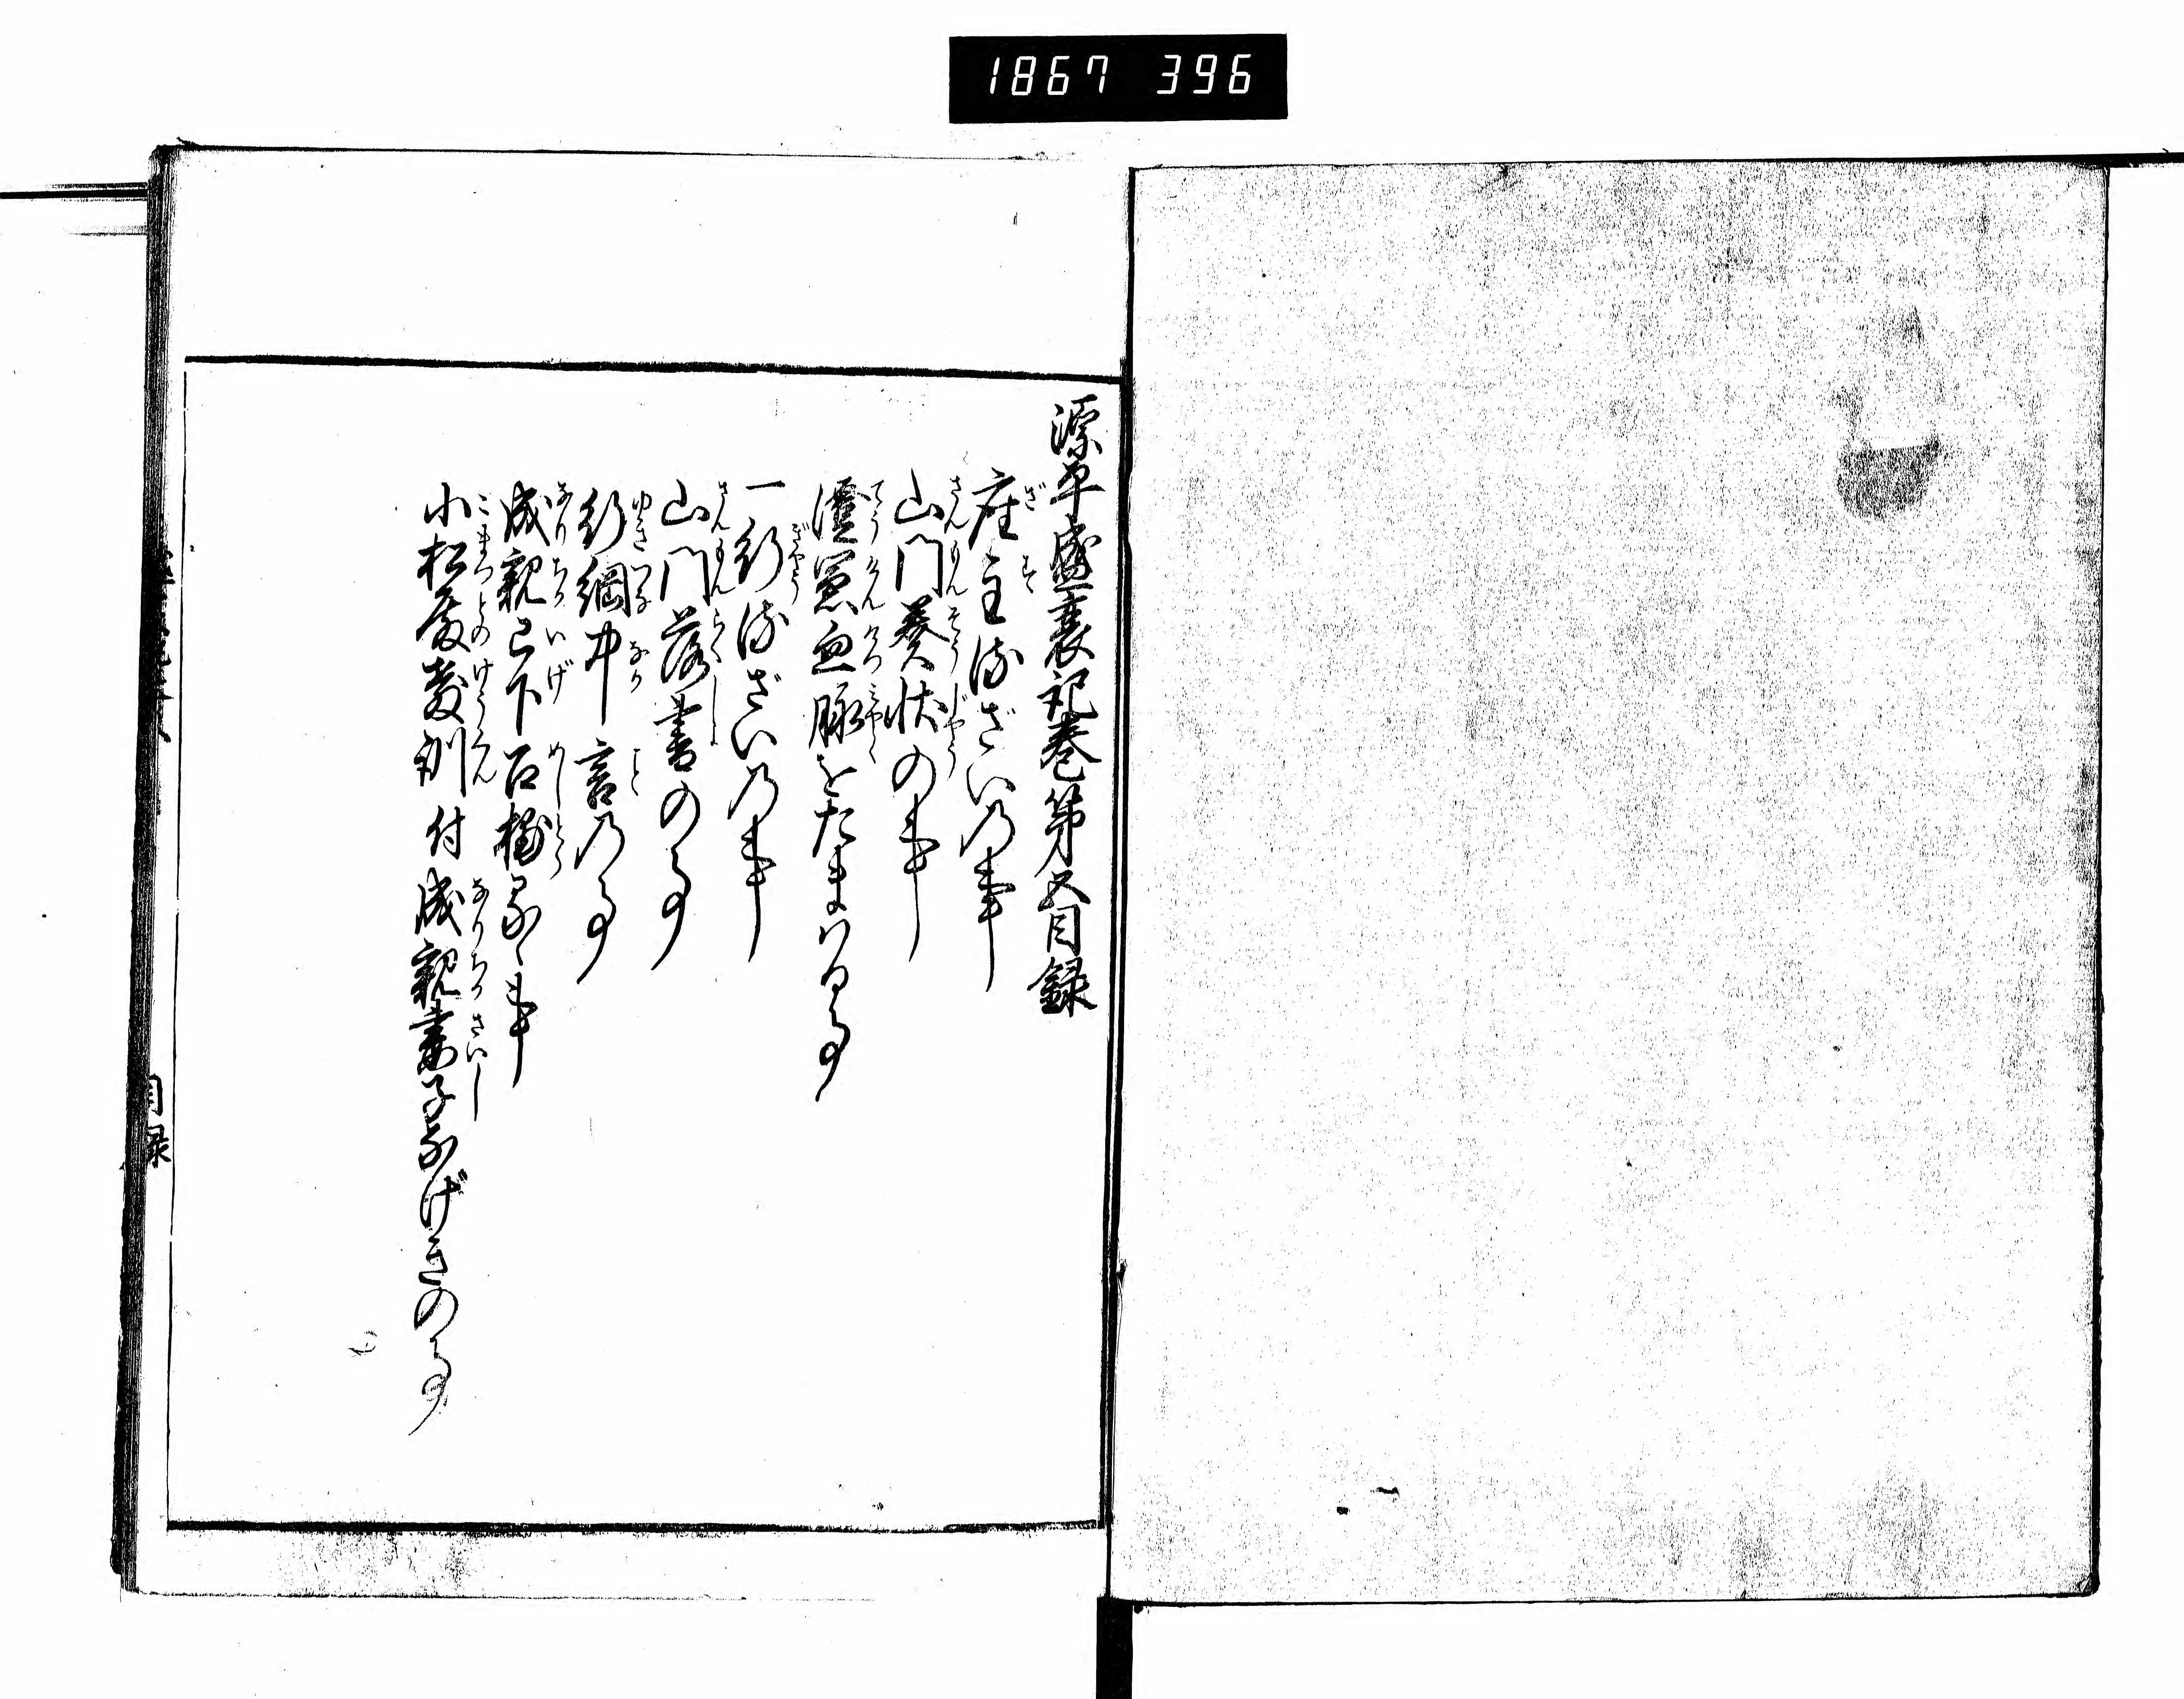 1867 396
源平盛衰記巻第五目録
座主流ざいの事
山門奏状の事
澄憲血脉をたまはる事
一行流ざいの事
山門落書の事
行綱中言の事
成親已下召捕るゝ事
小松殿教訓付成親妻子なげきの事
目録